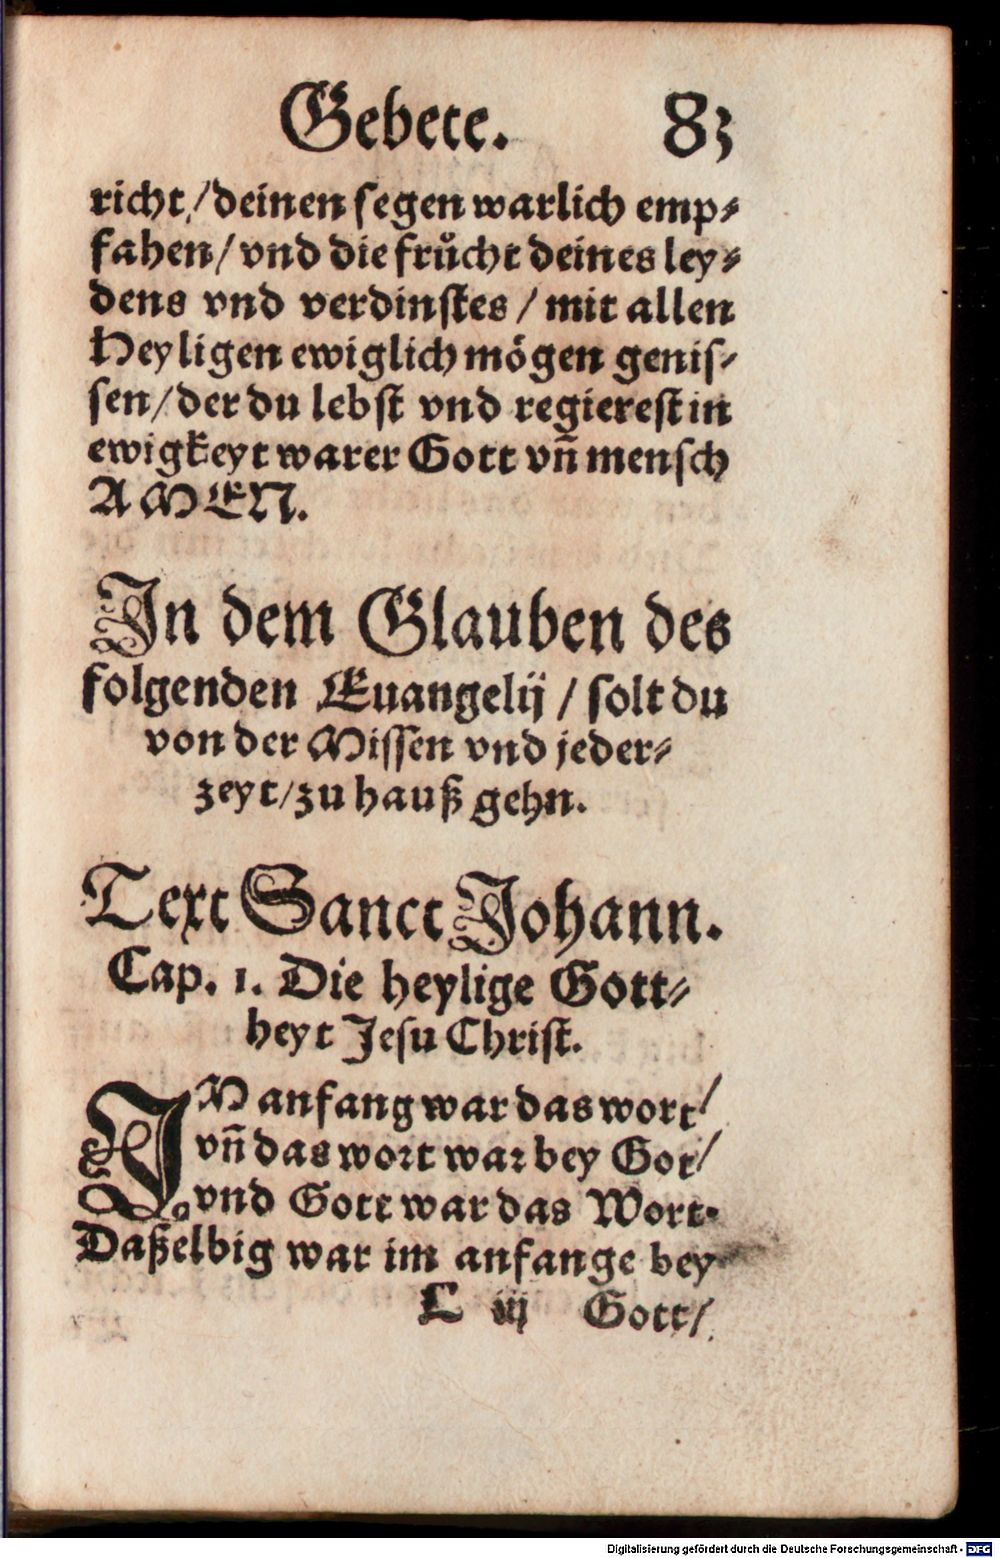 Gebete. 83
richt / deinen segen warlich emp⸗
fahen / vnd die fruͤcht deines ley⸗
dens vnd verdinstes / mit allen
Heyligen ewiglich mögen genis⸗
sen / der du lebst vnd regierest in
ewigkeyt warer Gott vn̄ mensch
AMEN.
In dem Glauben des
folgenden Euangelij / solt du
von der Missen vnd jeder⸗
zeyt / zu hauß gehn.
Text Sanct Johann.
Cap. 1. Die heylige Gott⸗
heyt Jesu Christ.
IN anfang war das wort /
vn̄ das wort war bey Got /
vnd Gott war das Wort.
Daßelbig war im anfange bey
L iij Gott /
Digitalisierung gefördert durch die Deutsche Forschungsgemeinschaft - DFG